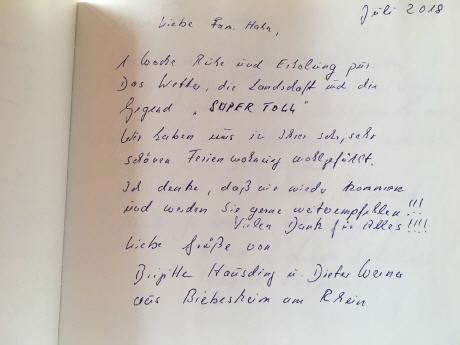 Juli 2018
Liebe Fam. Hahn,
1 Woche Ruhe und Erholung pur.
Das Wetter, die Landschaft und die
Gegend „SUPER TOLL"
Wir haben uns in Ihrer sehr, sehr
schönen Ferienwohnung wohlgefühlt.
Ich denke, daß wir wieder kommen
und werden Sie gerne weiterempfehlen!!!
Vielen Dank für Alles!!!!
Liebe Grüße von
Brigitte Hausding u. Dieter Werner
aus Biebesheim am Rhein